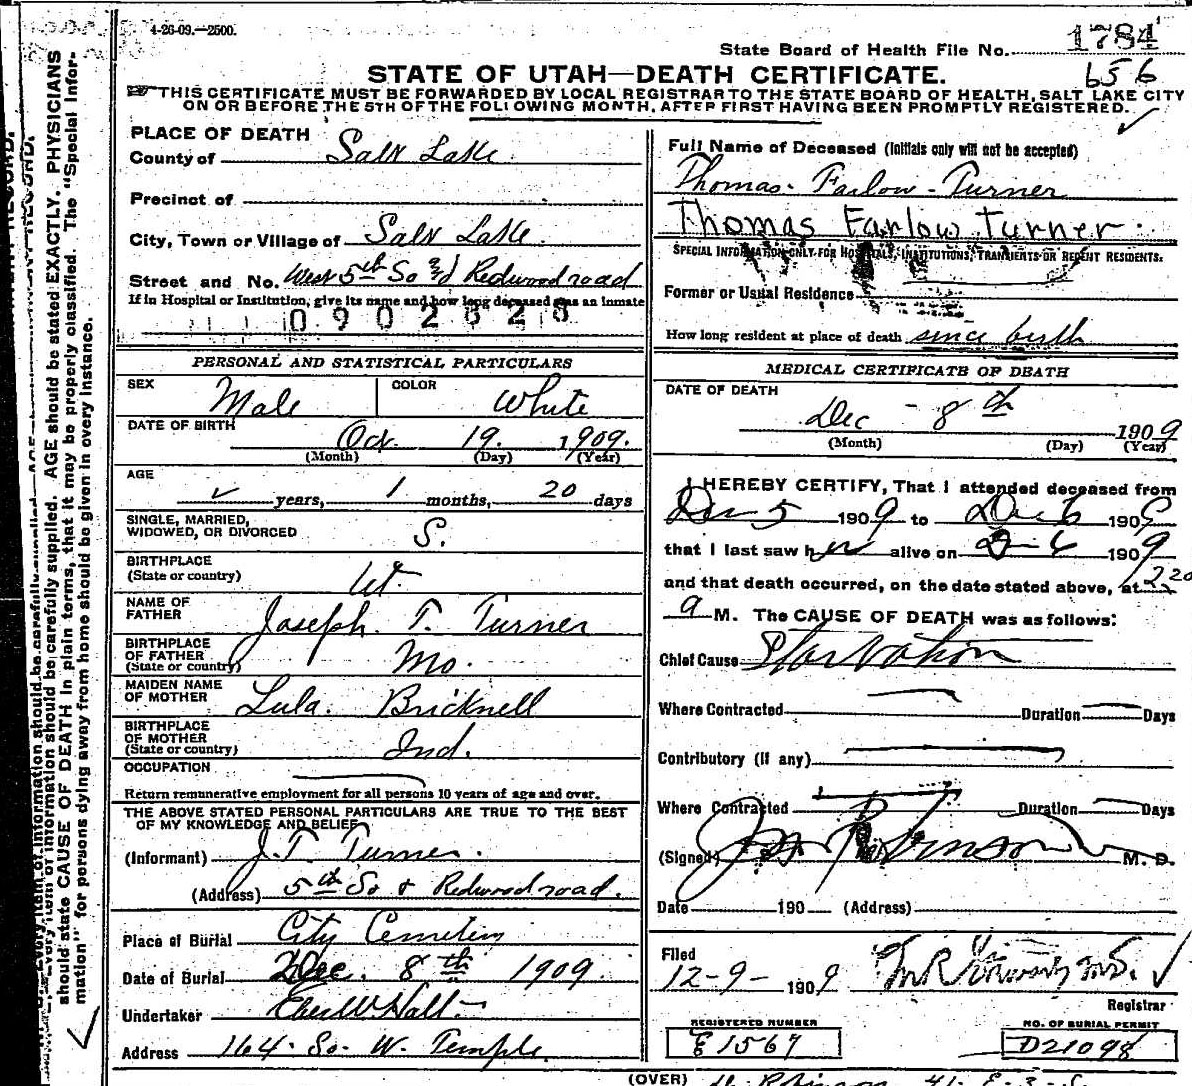 4-26-09.—2500.
State Board of Health File No. 1784
656
STATE OF UTAH—DEATH CERTIFICATE.
THIS CERTIFICATE MUST BE FORWARDED BY LOCAL REGISTRAR TO THE STATE BOARD OF HEALTH, SALT LAKE CITY
ON OR BEFORE THE 5TH OF THE FOLLOWING MONTH, AFTER FIRST HAVING BEEN PROMPTLY REGISTERED.
PLACE OF DEATH
County of Salt Lake
Precinct of
City, Town or Village of Salt Lake
Street and No. West 5th So & Redwood road
If in Hospital or Institution, give its name and how long deceased was an inmate
PERSONAL AND STATISTICAL PARTICULARS
SEX Male COLOR White
DATE OF BIRTH Oct. 19. 1909.
(Month) (Day) (Year)
AGE
years, 1 months, 20 days
SINGLE, MARRIED,
WIDOWED, OR DIVORCED S.
BIRTHPLACE
(State or country) Ut.
NAME OF
FATHER Joseph. T. Turner
BIRTHPLACE
OF FATHER
(State or country) Mo.
MAIDEN NAME
OF MOTHER Lula. Bricknell
BIRTHPLACE
OF MOTHER
(State or country) Ind.
OCCUPATION
Return remunerative employment for all persons 10 years of age and over.
THE ABOVE STATED PERSONAL PARTICULARS ARE TRUE TO THE BEST
OF MY KNOWLEDGE AND BELIEF
(Informant) J. T. Turner.
(Address) 5th So & Redwood road.
Place of Burial City Cemetery
Date of Burial Dec. 8th 1909.
Undertaker Eber W Hall
Address 164. So. W. Temple.
Full Name of Deceased (Initials only will not be accepted)
Thomas. Farlow-Turner
Thomas Farlow Turner
SPECIAL INFORMATION ONLY FOR HOSPITALS, INSTITUTIONS, TRANSIENTS OR RECENT RESIDENTS.
Former or Usual Residence
How long resident at place of death since birth
MEDICAL CERTIFICATE OF DEATH
DATE OF DEATH
Dec - 8th 1909
(Month) (Day) (Year)
I HEREBY CERTIFY, That I attended deceased from
Dec 5 1909 to Dec 6 1909
that I last saw h alive on 1909
and that death occurred, on the date stated above, at
a M. The CAUSE OF DEATH was as follows:
Chief Cause Starvation
Where Contracted Duration Days
Contributory (If any)
Where Contracted Duration Days
(Signed) Robinson M. D.
Date 190 (Address)
Filed
12-9- 1909
Registrar
REGISTERED NUMBER
E 1567
NO. OF BURIAL PERMIT
D21098
(OVER)
should be carefully supplied. AGE should be stated EXACTLY. PHYSICIANS
should state CAUSE OF DEATH in plain terms, that it may be properly classified. The "Special Infor-
mation" for persons dying away from home should be given in every instance.